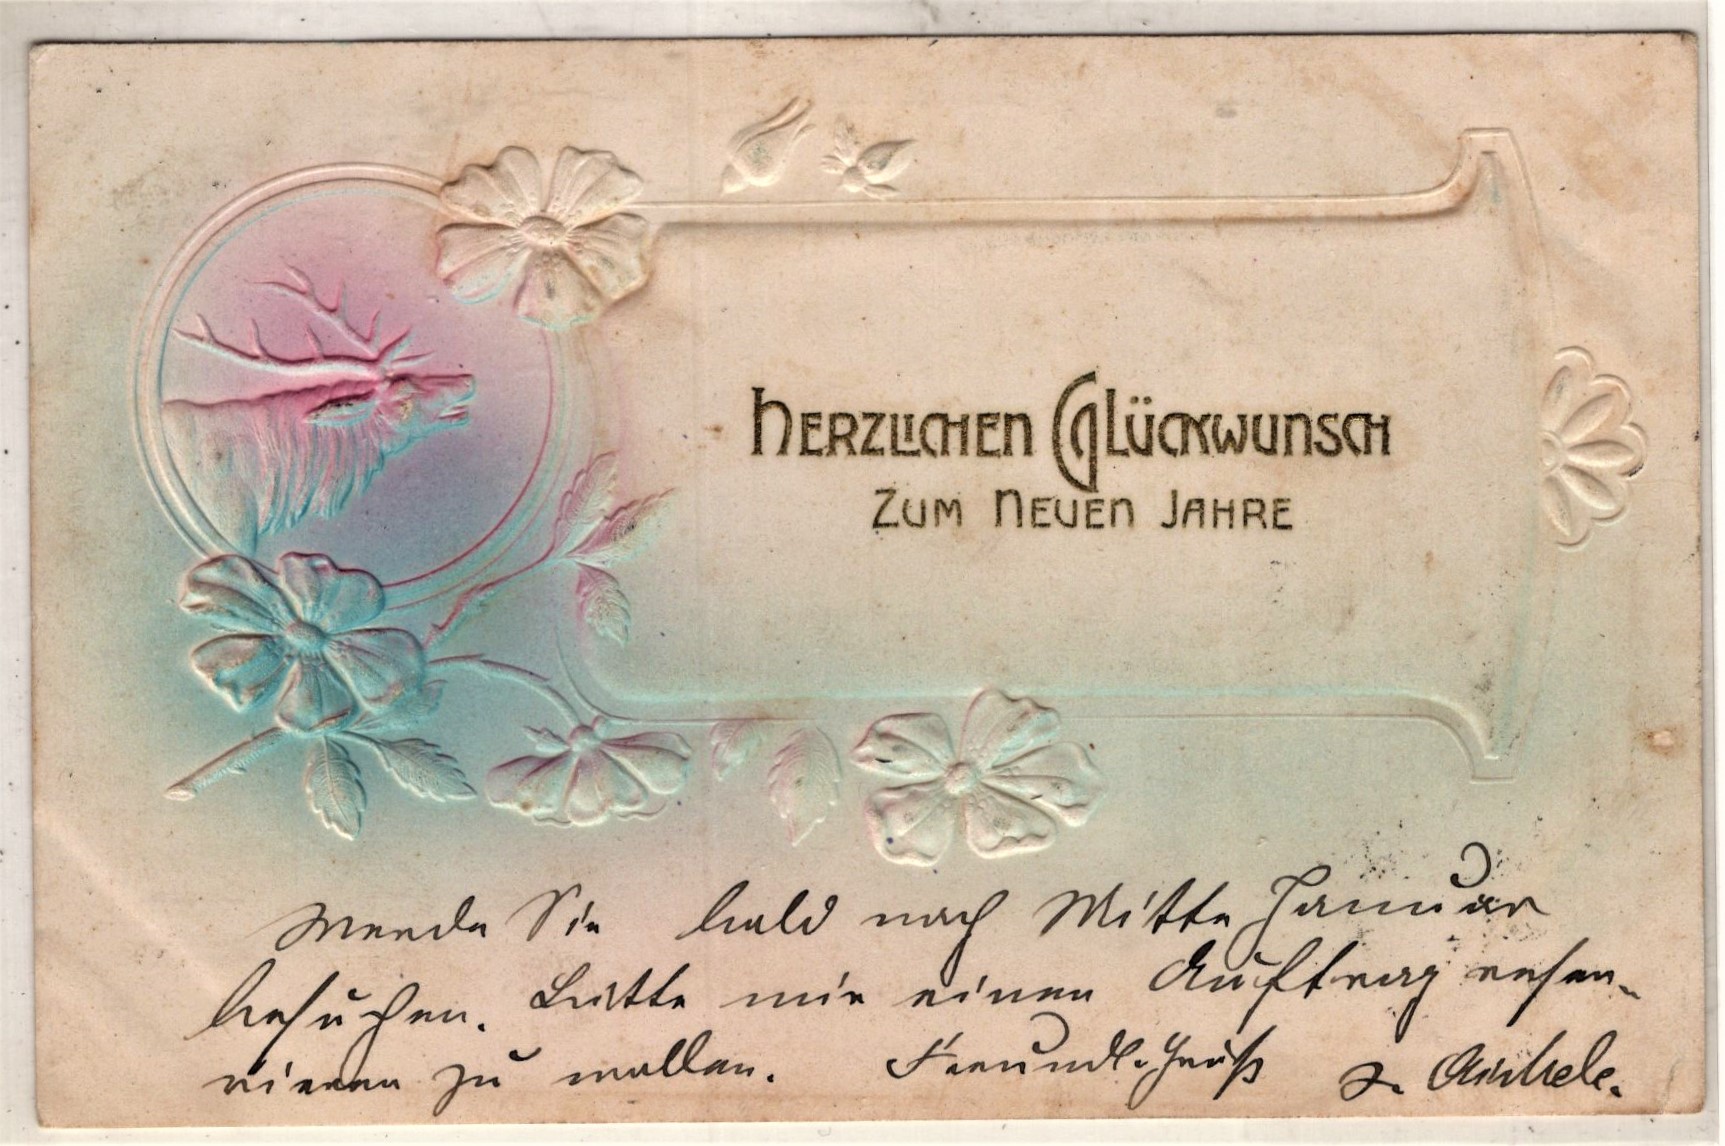 Herzlichen Glückwunsch
Zum Neuen Jahre
Werde Sie bald nach Mitte Januar
besuchen. Bitte mir einen Auftrag reser-
vieren zu wollen. Freundl. Gruß